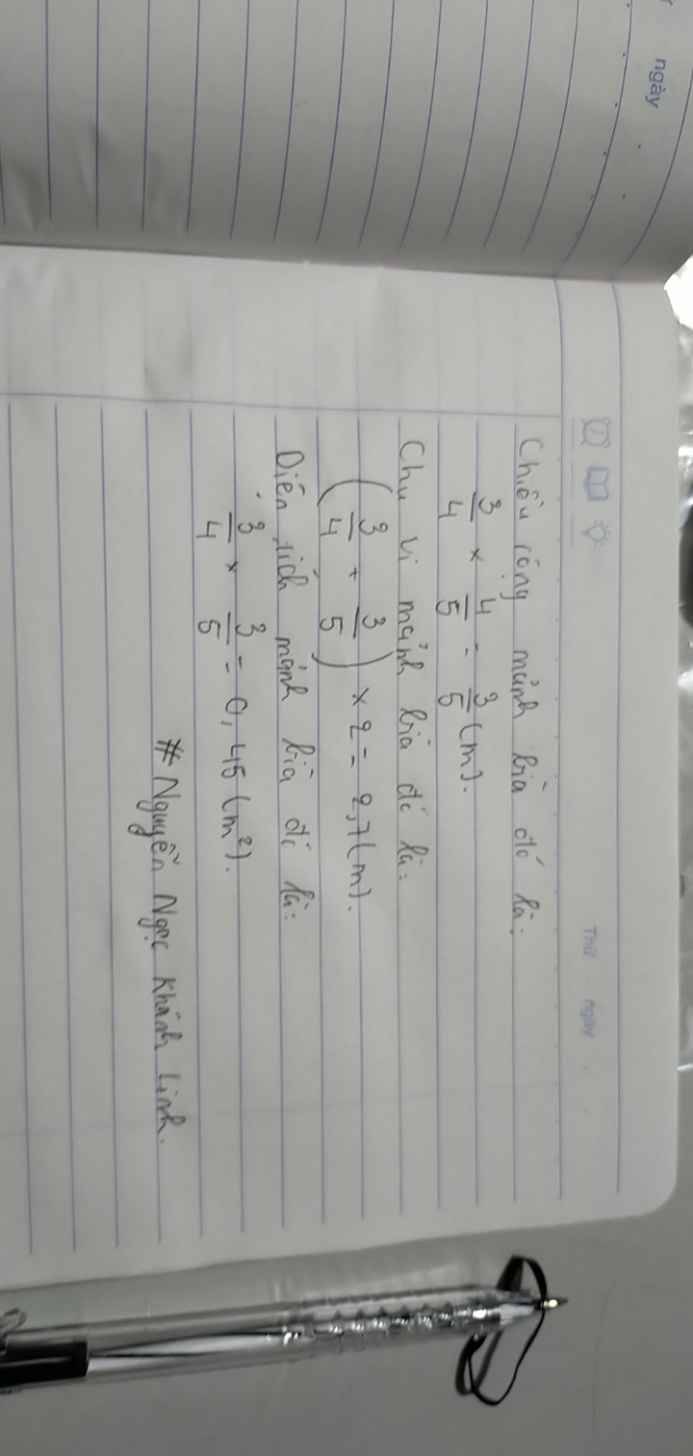 ngày
Thứ ngày
Chiều rộng mảnh bìa đó là:
3/4 × 4/5 = 3/5 (m).
Chu vi mảnh bìa đó là:
(3/4 + 3/5) × 2 = 2,7 (m).
Diện tích mảnh bìa đó là:
3/4 × 3/5 = 0,45 (m²).
# Nguyễn Ngọc Khánh Linh.